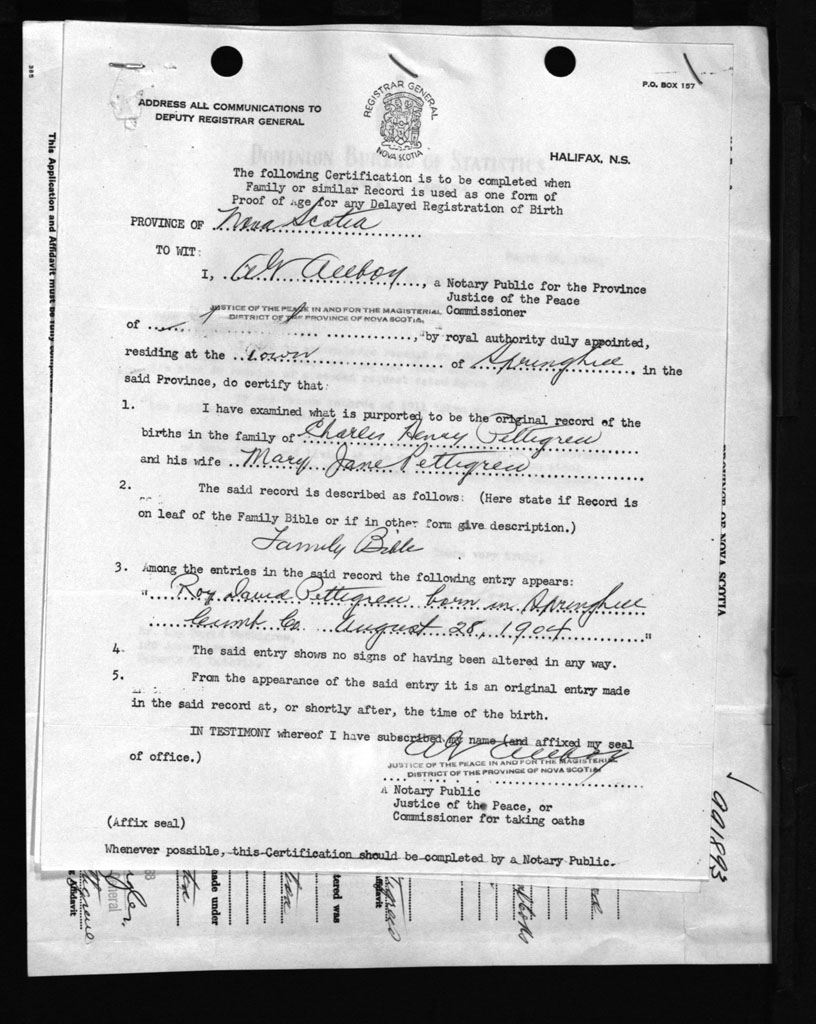 P.O. BOX 157
ADDRESS ALL COMMUNICATIONS TO
DEPUTY REGISTRAR GENERAL
REGISTRAR GENERAL
NOVA SCOTIA
HALIFAX, N.S.
The following Certification is to be completed when
Family or similar Record is used as one form of
Proof of Age for any Delayed Registration of Birth
PROVINCE OF Nova Scotia
TO WIT:
I, , a Notary Public for the Province
Justice of the Peace
JUSTICE OF THE PEACE IN AND FOR THE MAGISTERIAL Commissioner
DISTRICT OF THE PROVINCE OF NOVA SCOTIA.
of , by royal authority duly appointed,
residing at the Town of Springhill in the
said Province, do certify that:
1. I have examined what is purported to be the original record of the
births in the family of Charles Henry Pettigrew
and his wife Mary Jane Pettigrew
2. The said record is described as follows: (Here state if Record is
on leaf of the Family Bible or if in other form give description.)
Family Bible
3. Among the entries in the said record the following entry appears:
"Roy David Pettigrew born in Springhill
Cumb. Co. August 28, 1904"
4. The said entry shows no signs of having been altered in any way.
5. From the appearance of the said entry it is an original entry made
in the said record at, or shortly after, the time of the birth.
IN TESTIMONY whereof I have subscribed my name (and affixed my seal
of office.)
JUSTICE OF THE PEACE IN AND FOR THE MAGISTERIAL
DISTRICT OF THE PROVINCE OF NOVA SCOTIA
A Notary Public
Justice of the Peace, or
Commissioner for taking oaths
(Affix seal)
Whenever possible, this Certification should be completed by a Notary Public.
This Application and Affidavit must be fully
NOVA SCOTIA
991893
made under
tered was
Affidavit
Affidavit